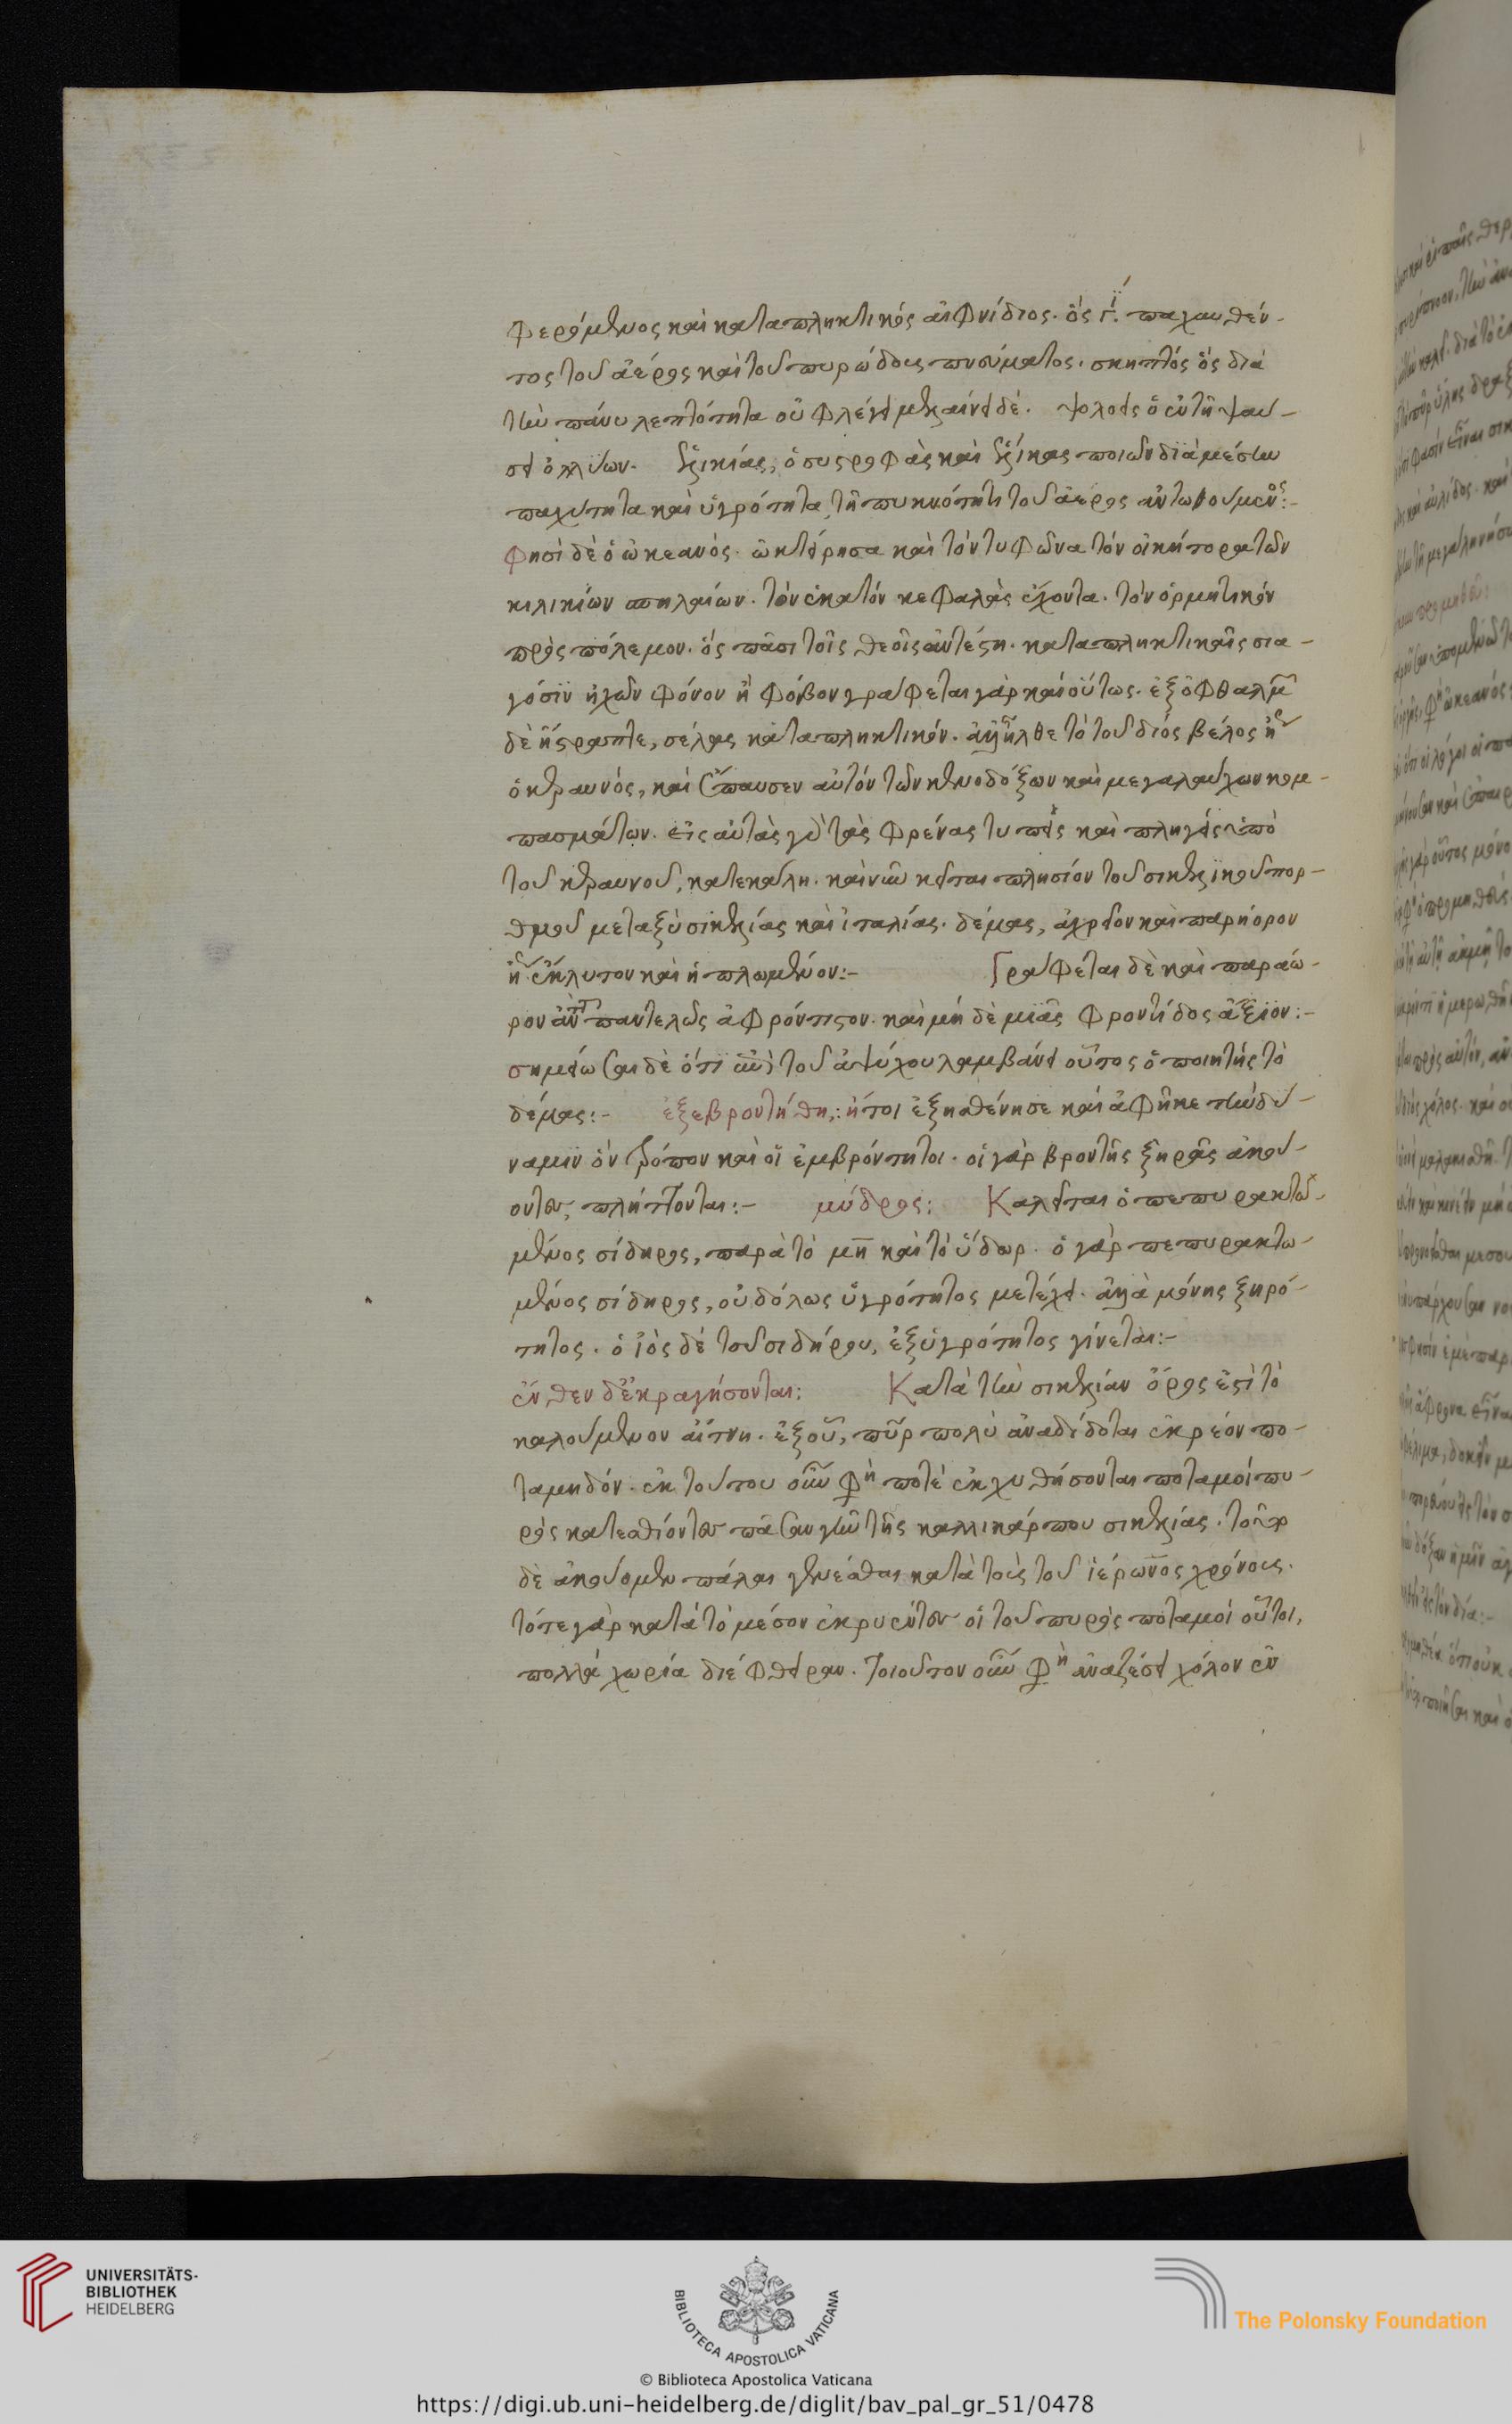 φερόμενος καὶ καταπληκτικός αἰφνίδιος. ὅς γί. παχυνθέν-
τος τοῦ ἀέρος καὶ τοῦ πυρώδους πνεύματος. σκηπτός ὅς διὰ
τὴν πάνυ λεπτότητα οὐ φλέγει μελαίνει δέ. ψολόεις ὁ ἐν τῇ ψαύ-
σει ὀλλύων. ἑλικίας, ὁ συστροφὰς καὶ ἕλικας ποιῶν διὰ μέσην
παχύτητα καὶ ὑγρότητα τῇ πυκνότητι τοῦ ἀέρος ἀντωθούμενος:-
φησὶ δὲ ὁ ὠκεανός. ὤκτειρησα καὶ τὸν τυφῶνα τόν οἰκήτορα τῶν
κιλικίων σπηλαίων. τὸν ἑκατόν κεφαλὰς ἔχοντα. τὸν ὁρμητικόν
πρὸς πόλεμον. ὅς πᾶσι τοῖς θεοῖς ἀντέστη. καταπληκτικαῖς σια-
γόσϊν ἠχῶν φόνον ἢ φόβον γράφεται γὰρ καὶ οὕτως. ἐξ ὀφθαλμῶν
δὲ ἤστραπτε, σέλας καταπληκτικόν. ἀλλ' ἦλθε τὸ τοῦ διός βέλος ἤγουν
ὁ κεραυνός, καὶ ἔπαυσεν αὐτόν τῶν κενοδόξων καὶ μεγαλαύχων κομ-
πασμάτων. εἰς αὐτὰς γὰρ τὰς φρένας τυπεὶς καὶ πληγεὶς ὑπὸ
τοῦ κεραυνοῦ, κατεκάη. καὶ νῦν κεῖται πλησίον τοῦ σικελϊκοῦ πορ-
θμοῦ μεταξὺ σικελίας καὶ ἰταλίας. δέμας, ἀχρεῖον καὶ παρήορον
ἤγουν ἔκλυτον καὶ ἡπλωμένον:- Γράφεται δὲ καὶ παράω-
ρον ἀντὶ τοῦ παντελῶς ἀφρόντιστον. καὶ μὴ δὲ μιᾶς φροντίδος ἄξϊον:-
σημείωσαι δὲ ὅτι ἀντὶ τοῦ ἀψύχου λαμβάνει οὗτος ὁ ποιητής τὸ
δέμας:- ἐξεβροντήθη,: ἤτοι ἐξησθένησε καὶ ἀφῆκε τὴν δύ-
ναμιν ὃν τρόπον καὶ οἱ ἐμβρόντητοι. οἱ γὰρ βροντῆς ξηρᾶς ἀκού-
οντες, πλήττονται:- μύδρος: Καλεῖται ὁ πεπυρακτω-
μένος σίδηρος, παρὰ τὸ μὴ καὶ τὸ ὕδωρ. ὁ γὰρ πεπυρακτω-
μένος σίδηρος, οὐδόλως ὑγρότητος μετέχει. ἀλλὰ μόνης ξηρό-
τητος. ὁ ἰὸς δὲ τοῦ σιδήρου, ἐξ ὑγρότητος γίνεται:-
ἔνθεν δ' ἐκραγήσονται: Κατὰ τὴν σικελίαν ὄρος ἐστὶ τὸ
καλούμενον αἴτνη. ἐξ οὗ, πῦρ πολὺ ἀναδίδοται ἐκρέον πο-
ταμηδόν. ἐκ τούτου οὖν φη ποτὲ ἐκχυθήσονται ποταμοί πυ-
ρὸς κατεσθίοντες πᾶσαν γῆν τῆς καλλικάρπου σικελίας. τοῦτο
δὲ ἀκούομεν πάλαι γενέσθαι κατὰ τοὺς τοῦ ἱέρωνος χρόνους.
τότε γὰρ κατὰ τὸ μέσον ἐκρυέντες οἱ τοῦ πυρὸς ποταμοί οὗτοι,
πολλὰ χωρία διέφθειραν. Τοιοῦτον οὖν φη ἀναζέσει χόλον ἐν
UNIVERSITÄTS-
BIBLIOTHEK
HEIDELBERG
BIBLIOTECA APOSTOLICA VATICANA
The Polonsky Foundation
© Biblioteca Apostolica Vaticana
https://digi.ub.uni-heidelberg.de/diglit/bav_pal_gr_51/0478